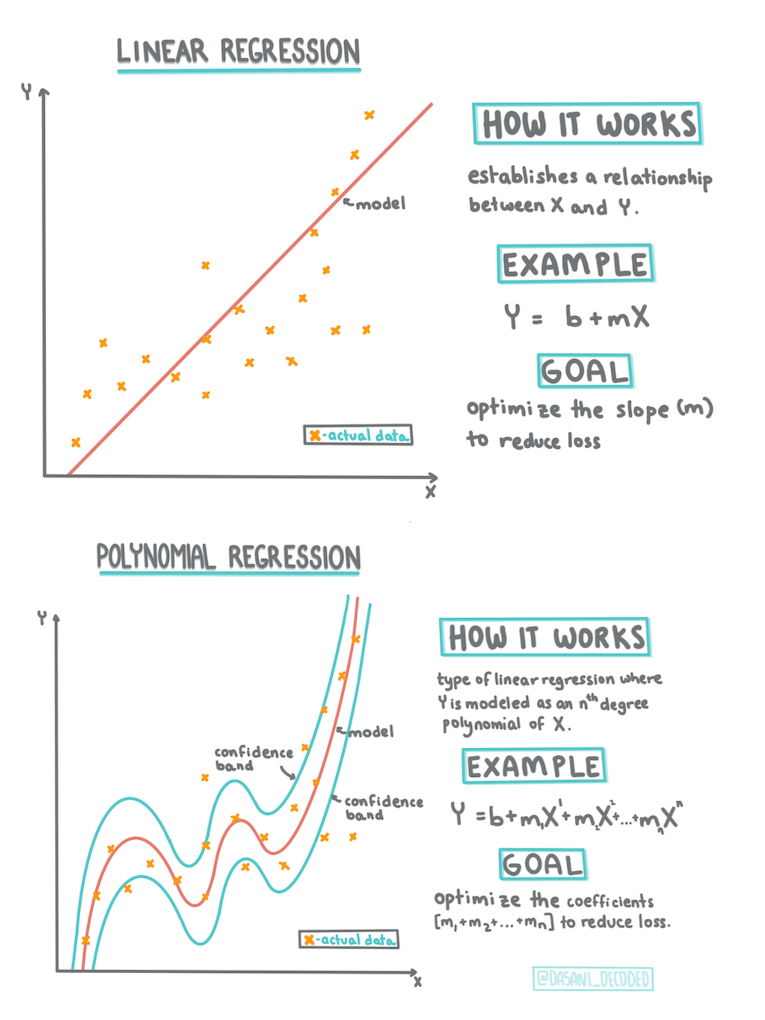 LINEAR REGRESSION
Y
model
x-actual data
X
HOW IT WORKS
establishes a relationship
between X and Y.
EXAMPLE
Y = b + mX
GOAL
optimize the slope (m)
to reduce loss
POLYNOMIAL REGRESSION
Y
confidence
band
model
confidence
band
x-actual data
X
HOW IT WORKS
type of linear regression where
Y is modeled as an nth degree
polynomial of X.
EXAMPLE
Y = b + m₁X¹ + m₂X² + ... + mₙXⁿ
GOAL
optimize the coefficients
[m₁+m₂+...+mₙ] to reduce loss.
@DASANI_DECODED